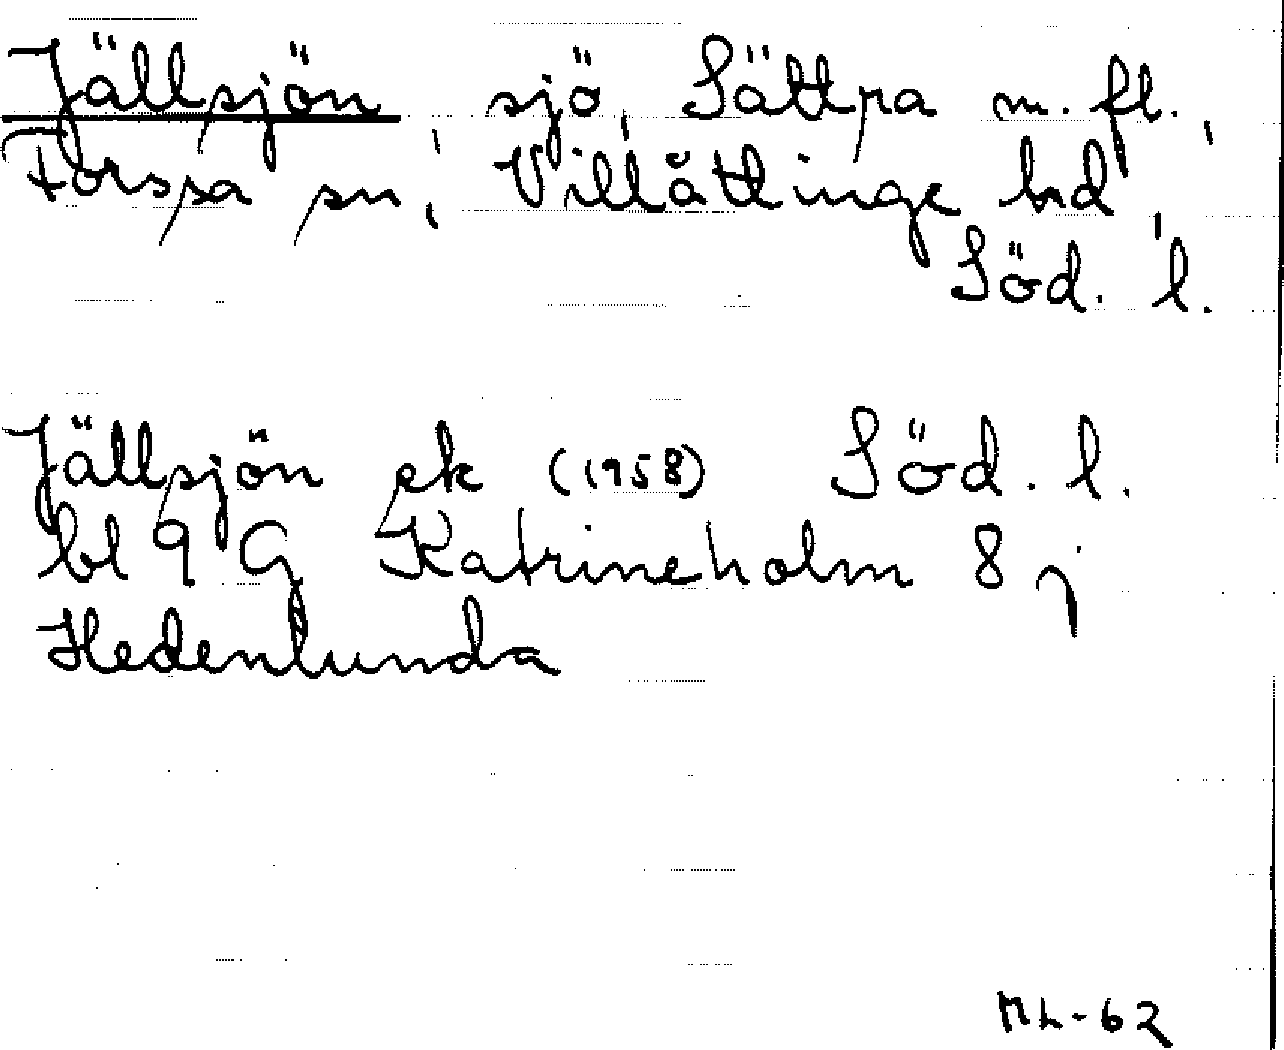 Jällsjön, sjö, Sättra m. fl.,
Forssa sn, Villåttinge hd,
Söd. l.
Jällsjön ek (1958) Söd. l.
bl 9 G Katrineholm 8 j
Hedenlunda
ML-62